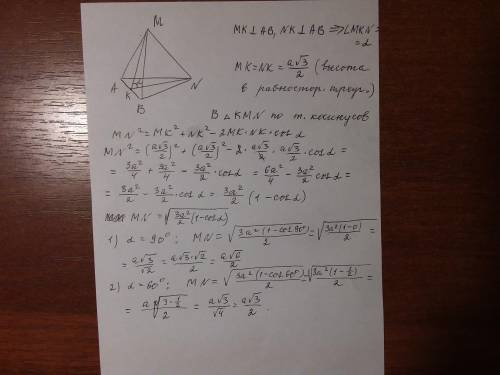 M
A
K
B
N
α
MK⊥AB, NK⊥AB ⇒ ∠MKN =
= α
MK = NK = a√3/2 (высота
в равностор. треуг.)
В △KMN по т. косинусов
MN² = MK² + NK² - 2MK · NK · cos α
MN² = (a√3/2)² + (a√3/2)² - 2 · a√3/2 · a√3/2 cos α =
= 3a²/4 + 3a²/4 - 3a²/2 cos α = 6a²/4 - 3a²/2 cos α =
= 3a²/2 - 3a²/2 · cos α = 3a²/2 (1 - cos α)
MN = √(3a²/2 (1 - cos α))
1) α = 90°; MN = √(3a²(1 - cos 90°)/2) = √(3a²(1-0)/2) =
= a√3/√2 = a√3·√2/2 = a√6/2
2) α = 60°; MN = √(3a²(1 - cos 60°)/2) = √(3a²(1 - 1/2)/2) =
= a√3/√4 = a√3/2.